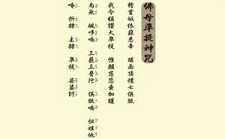 佛母準提神咒
稽首皈依蘇悉帝
頭面頂禮七俱胝
我今稱讚大準提
惟願慈悲垂加護
南無
三藐三菩陀
俱胝喃
怛姪他
唵
折隸
主隸
準提
娑婆訶